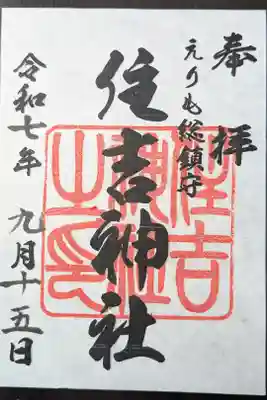 奉拝
えりも総鎮守
住吉神社
住吉神社之印
令和七年 九月十五日